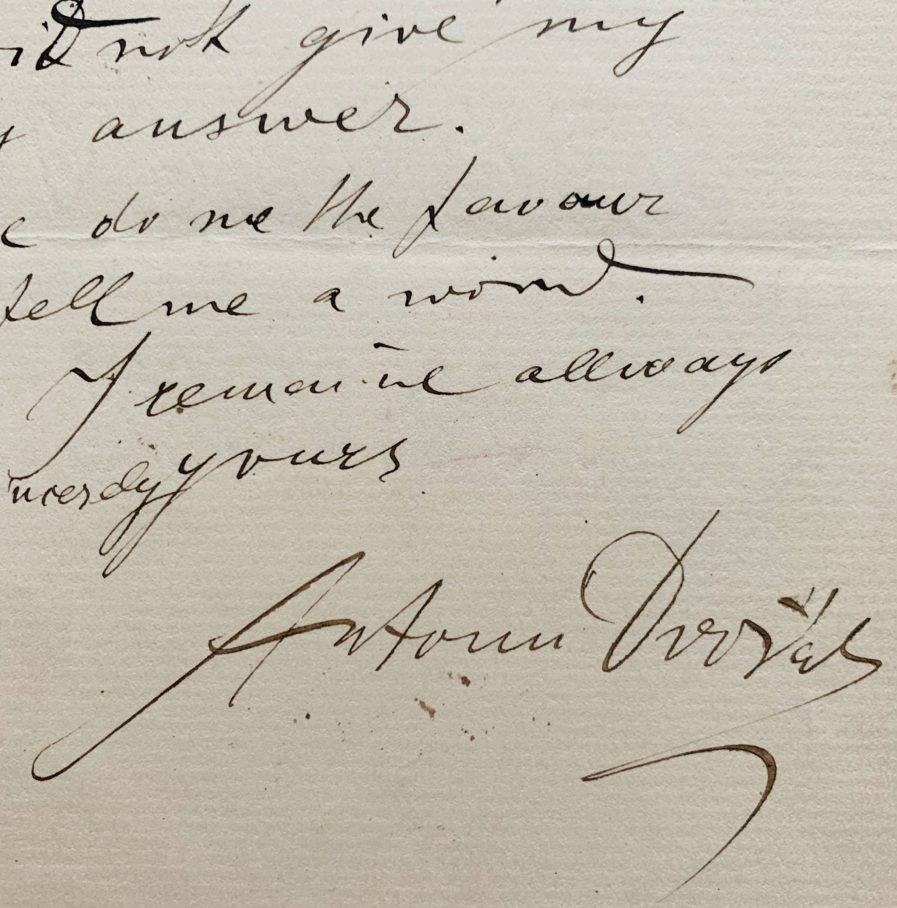 did not give my
answer.
do me the favour
tell me a word.
I remaine allways
yours
Antonín Dvořák